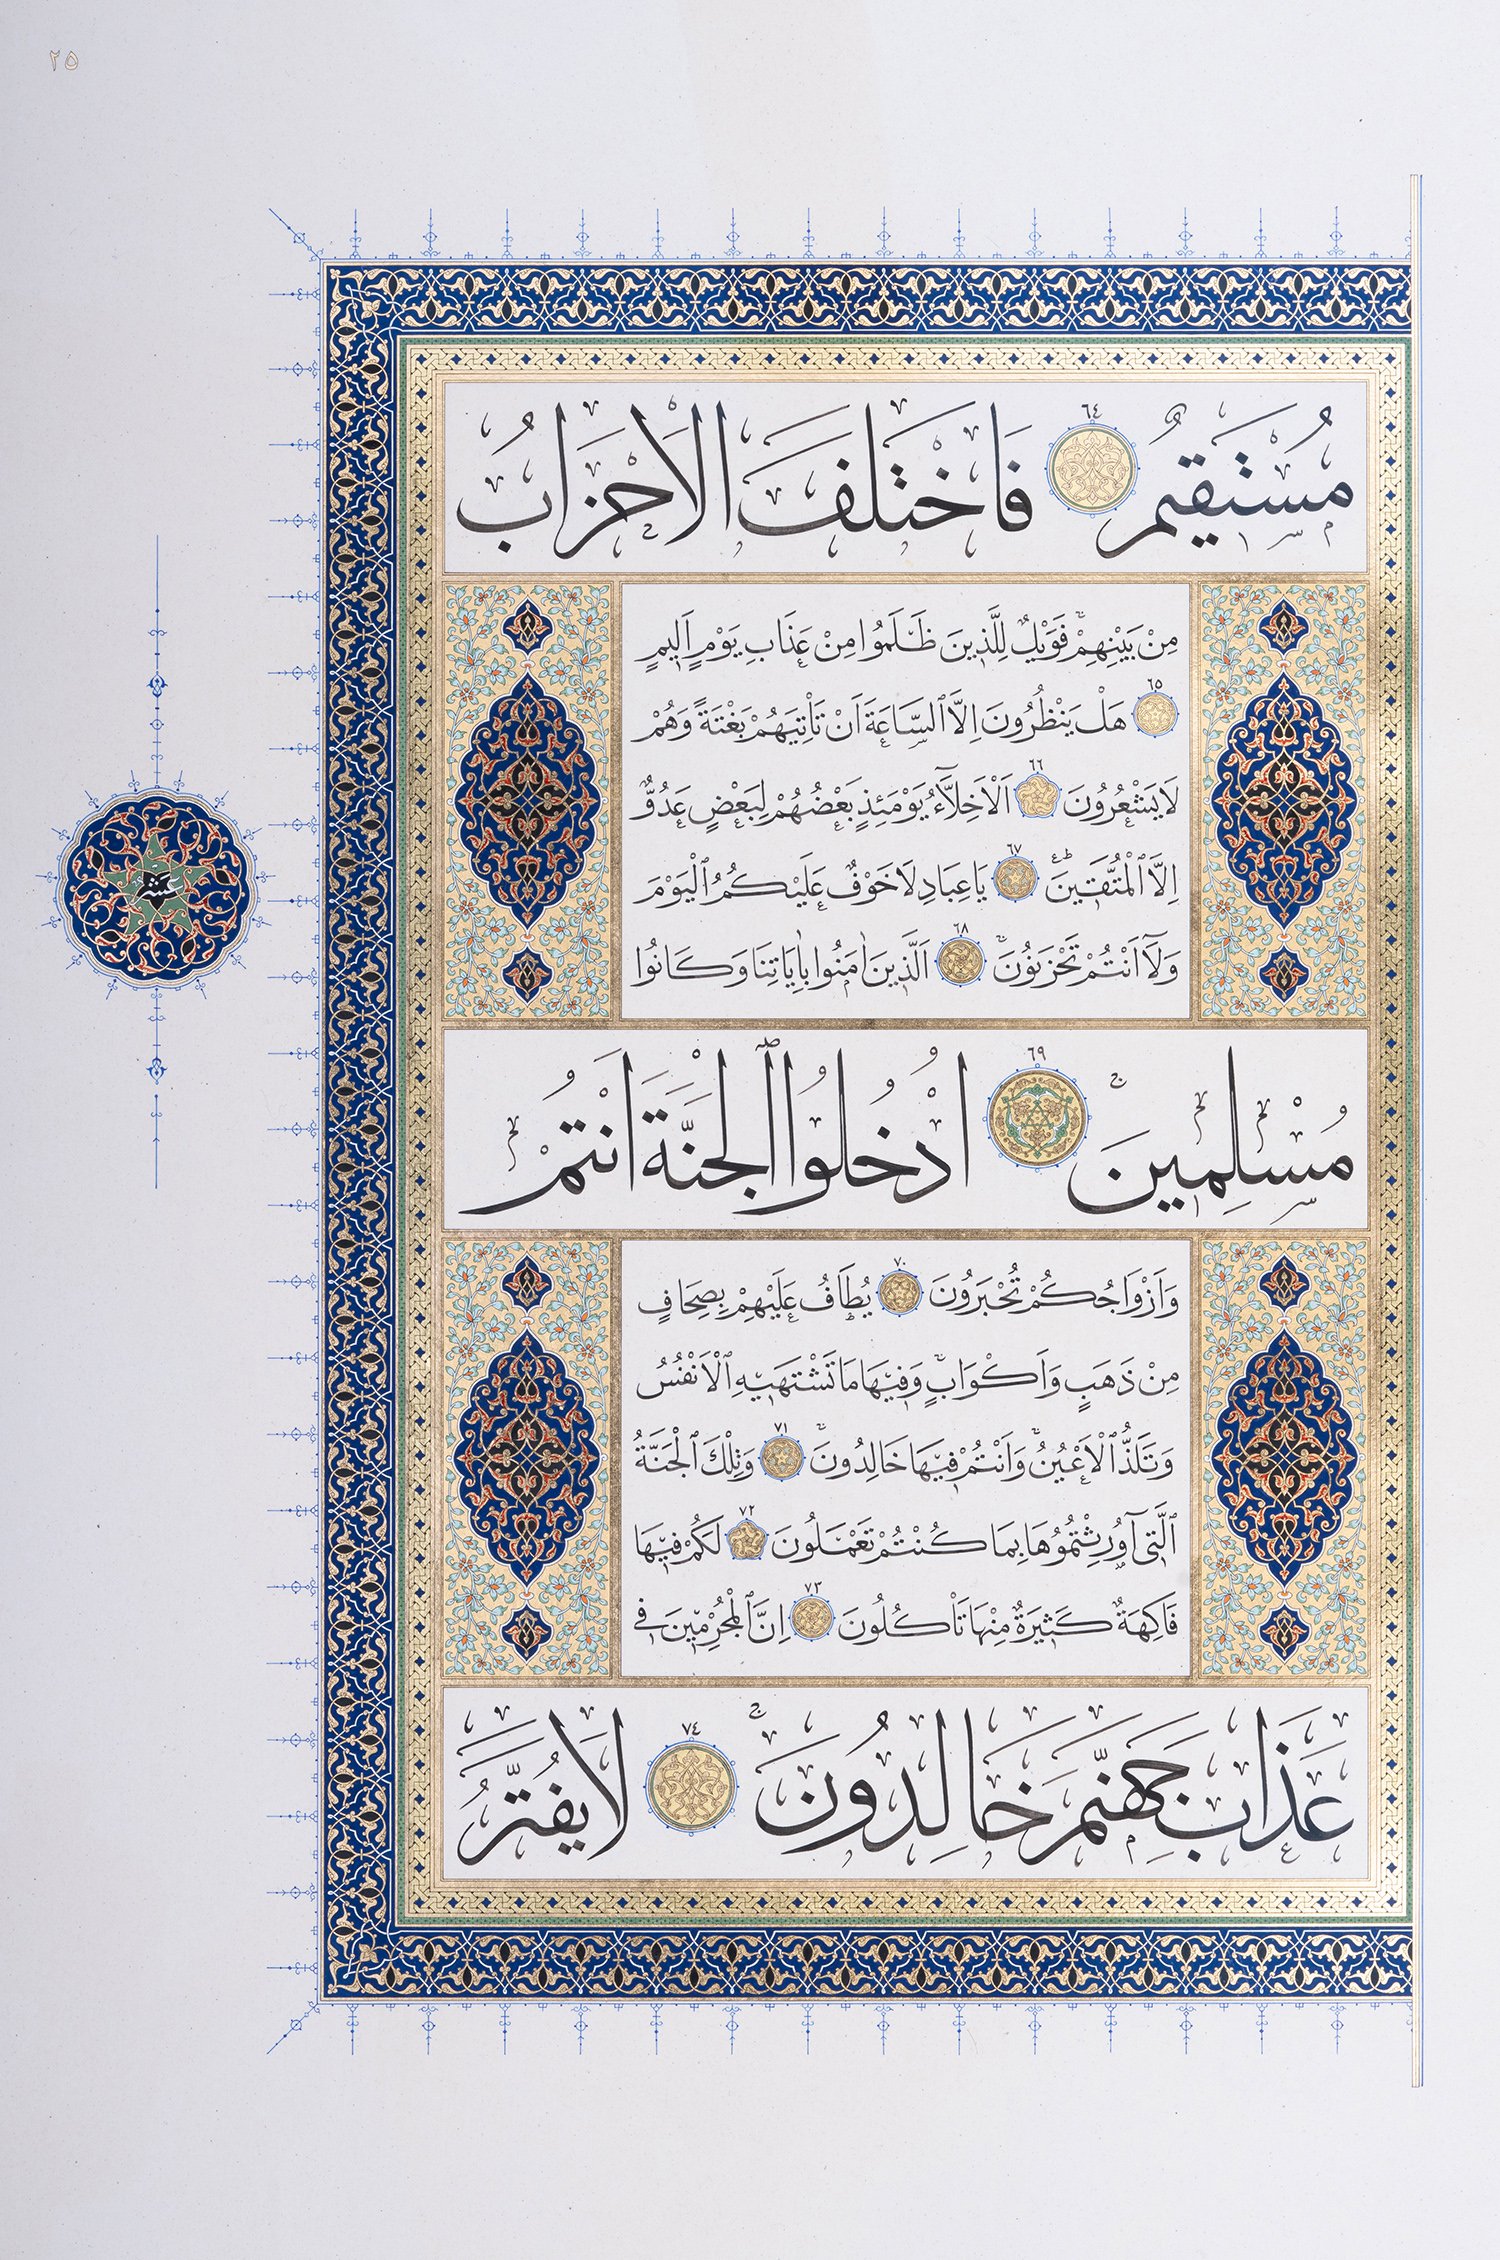 ٢٥
مُسْتَقِيمٌ ٦٤ فَاخْتَلَفَ الْاَحْزَابُ
مِنْ بَيْنِهِمْ فَوَيْلٌ لِلَّذِينَ ظَلَمُوا مِنْ عَذَابِ يَوْمٍ اَلِيمٍ
٦٥ هَلْ يَنْظُرُونَ اِلَّا السَّاعَةَ اَنْ تَاْتِيَهُمْ بَغْتَةً وَهُمْ
لَا يَشْعُرُونَ ٦٦ اَلْاَخِلَّاۤءُ يَوْمَئِذٍ بَعْضُهُمْ لِبَعْضٍ عَدُوٌّ
اِلَّا الْمُتَّقِينَ ٦٧ يَا عِبَادِ لَا خَوْفٌ عَلَيْكُمُ الْيَوْمَ
وَلَاۤ اَنْتُمْ تَحْزَنُونَ ٦٨ اَلَّذِينَ اٰمَنُوا بِاٰيَاتِنَا وَكَانُوا
مُسْلِمِينَ ٦٩ اُدْخُلُوا الْجَنَّةَ اَنْتُمْ
وَاَزْوَاجُكُمْ تُحْبَرُونَ ٧٠ يُطَافُ عَلَيْهِمْ بِصِحَافٍ
مِنْ ذَهَبٍ وَاَكْوَابٍ وَفِيهَا مَا تَشْتَهِيهِ الْاَنْفُسُ
وَتَلَذُّ الْاَعْيُنُ وَاَنْتُمْ فِيهَا خَالِدُونَ ٧١ وَتِلْكَ الْجَنَّةُ
الَّتِىۤ اُورِثْتُمُوهَا بِمَا كُنْتُمْ تَعْمَلُونَ ٧٢ لَكُمْ فِيهَا
فَاكِهَةٌ كَثِيرَةٌ مِنْهَا تَاْكُلُونَ ٧٣ اِنَّ الْمُجْرِمِينَ فِى
عَذَابِ جَهَنَّمَ خَالِدُونَ ٧٤ لَا يُفَتَّرُ
عشر